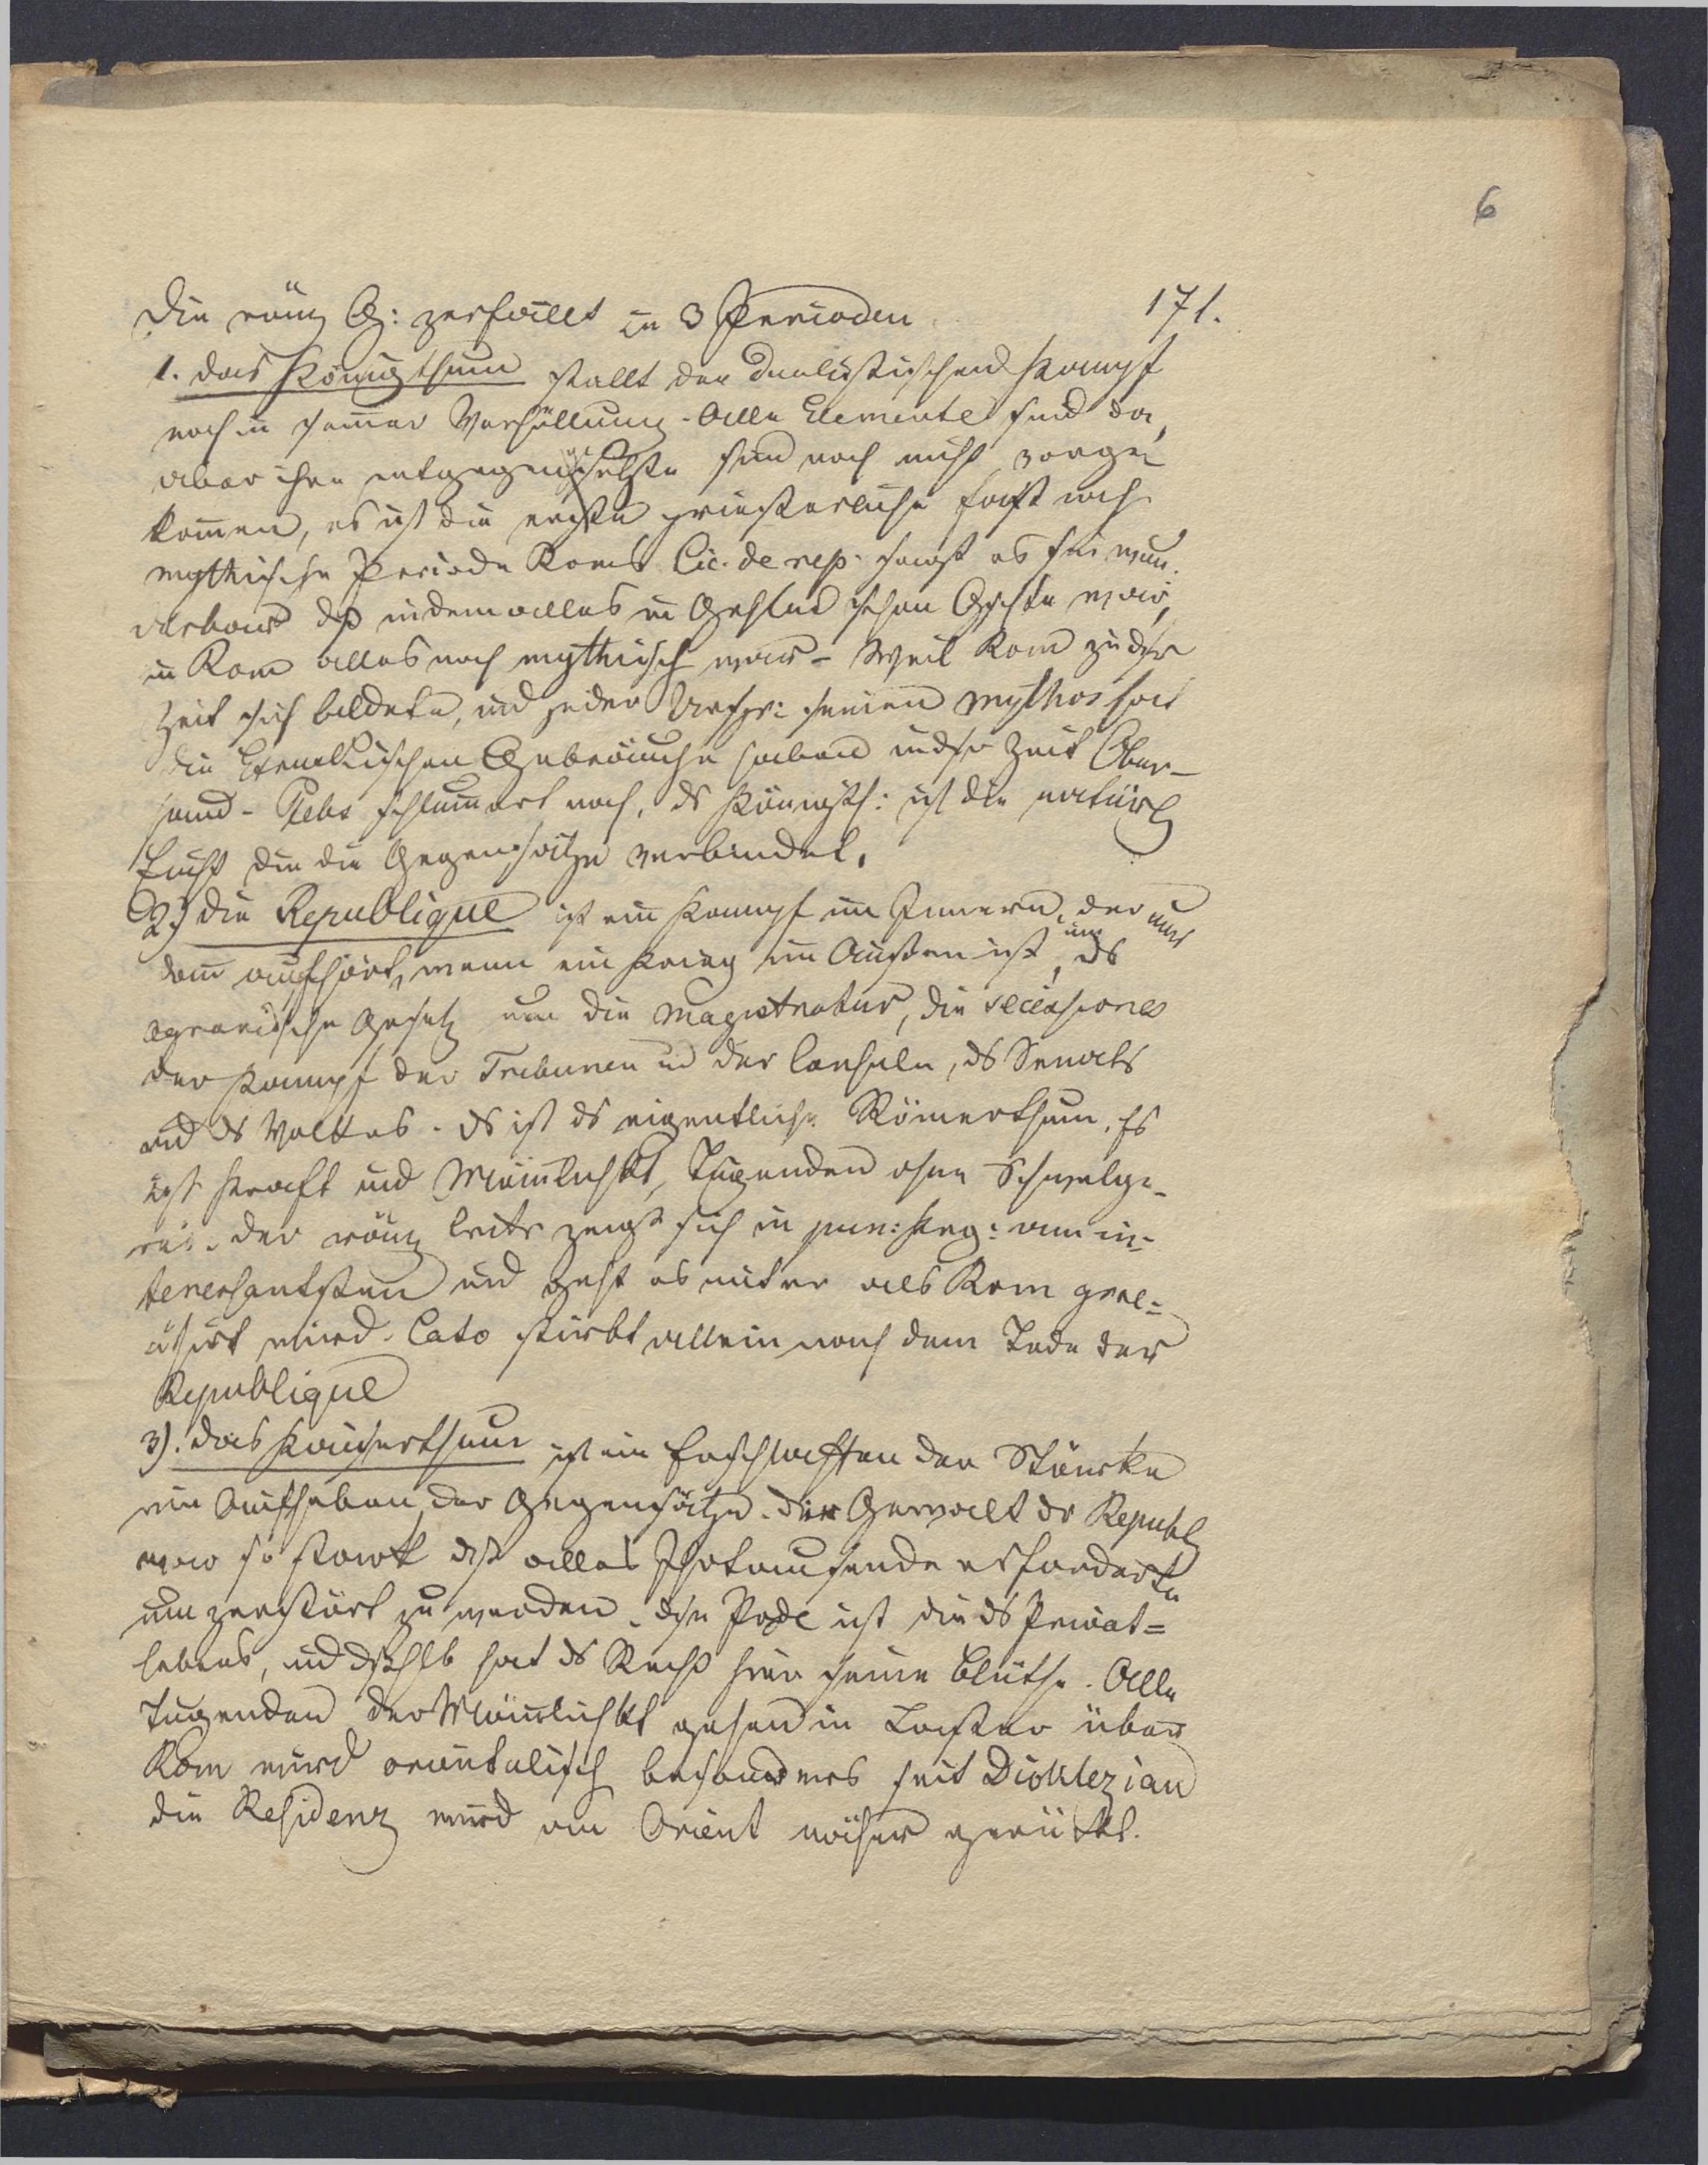 6
171.
Die röm G: zerfällt in 3 Perioden
1. das Königthum stellt den dualistischen Kampf
noch in seiner Verhüllung. Alle Elemente sind da,
aber ihre entgegengesetzte sind noch nicht vorge-
kommen, es ist die erste priesterliche fast noch
mythische Periode Roms Cic. de rep. sagt es sei wun-
derbar dß indem alles in Gchlnd schon Gschte war,
in Rom alles noch mythisch war – Weil Rom zu dsr
Zeit sich bildete, und jeder Urspr: seinen Mythos hat
die Etruskischen Gebräuche haben in dsr Zeit Ober-
hand – Plebs schlummert noch, ds Königth: ist die natürl
Einht die die Gegensätze verbindet.
2.) die Republique ist ein Kampf im Innern, der nur
dann aufhört, wenn ein Krieg im Äußern ist, um ds
agrarische Gesetz um die Magistratur, die secessiones
der Kampf der Tribunen und der Consuln, ds Senats
und ds Volkes. Ds ist ds eigentliche Römerthum. Es
ist Kraft und Männlichkt, Tugenden ohne Schwelge-
rei. der röm zeigt sich in pun: Krg: am in-
teressantsten und geht es unter als Rom grae-
cisirt wird. Cato stirbt allein nach dem Tode der
Republique
3). das Kaiserthum ist ein Erschlaffen der Stärke
ein Aufheben der Gegensätze. die Gewalt dr Republ
war so stark dß alles Jhrtausende erforderte
um zerstört zu werden. dse Pode ist die ds Privat-
lebens, und dshlb hat ds Recht hier seine Blüthe. Alle
Tugenden der Männlichkt gehen in Laster über
Rom wird orientalisch besonders seit Dioklezian
die Residenz wird am Orient näher gerückt.